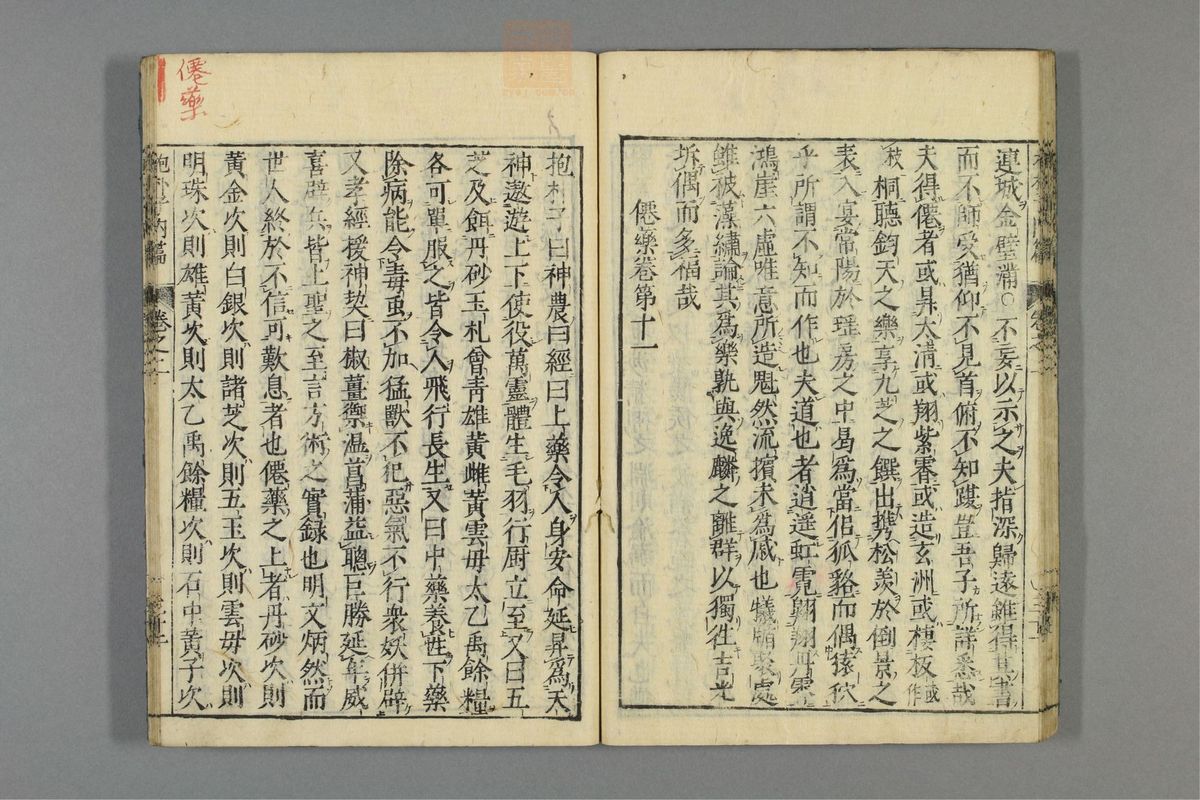 連城金璧滿○不妄以示之夫指深歸遠雖得其書
而不師受猶仰不見首俯不知跟豈吾子所詳悉哉
夫得僊者或昇太淸或翔紫霄或造玄洲或棲板
桐聽鈞天之樂享九芝之饌出携松羨於倒景之
表入宴常陽於瑤房之中曷爲當侣狐貉而偶猿狖
乎所謂不知而作也夫道也者逍遥虹霓翱翔丹霄
鴻崖六虛唯意所造魁然流擯未爲戚也犧腯聚處
雖被藻繡論其爲樂孰與逸麟之離群以獨徃吉光
坼偶而多福哉
僊藥卷第十一
抱朴子曰神農曰經曰上藥令人身安命延昇爲天
神遨遊上下使役萬靈體生毛羽行厨立至又曰五
芝及餌丹砂玉札曾靑雄黃雌黃雲毋太乙禹餘糧
各可單服之皆令人飛行長生又曰中藥養性下藥
除病能令毒虫不加猛獸不犯惡氣不行衆妖併辟
又孝經援神契曰椒薑禦温菖蒲益聰巨勝延年威
喜辟兵皆上聖之至言方術之實録也明文炳然而
世人終於不信可歎息者也僊藥之上者丹砂次則
黃金次則白銀次則諸芝次則五玉次則雲毋次則
明珠次則雄黃次則太乙禹餘糧次則石中黃子次
僊藥
内篇
卷之二